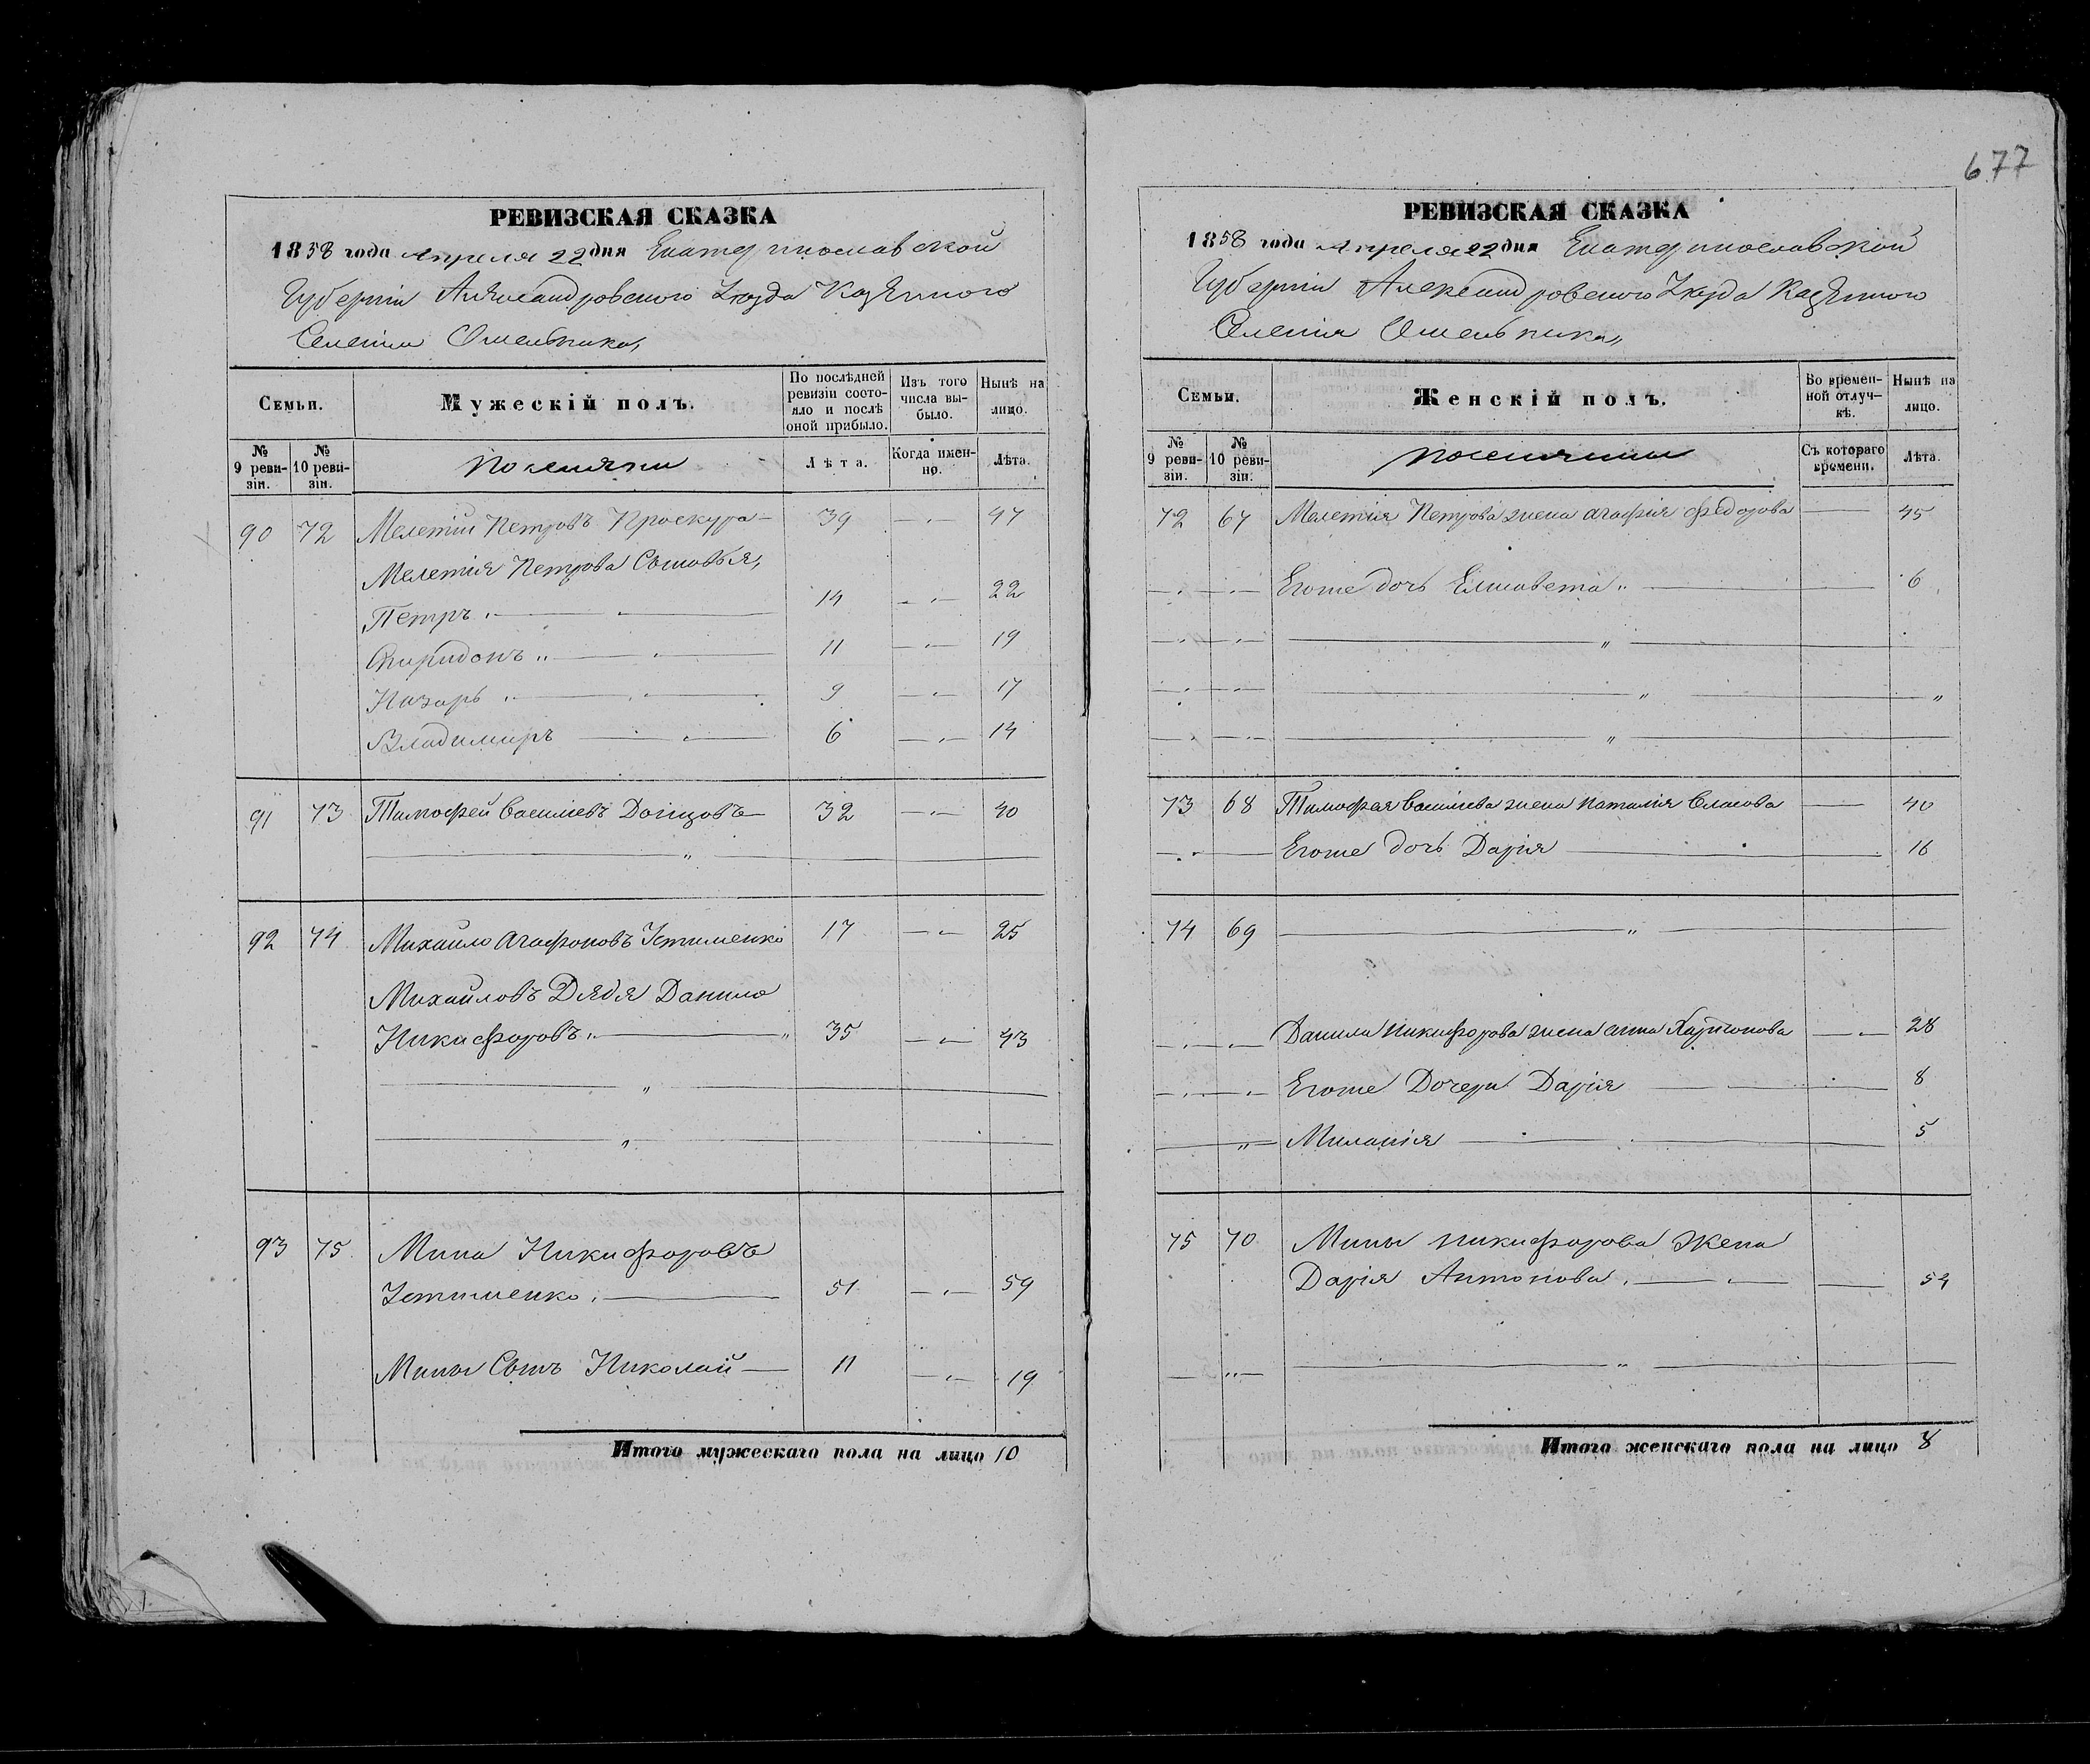 677
РЕВИЗСКАЯ СКАЗКА
1858 года Апреля 22 дня Екатеринославской
Губернiи Александровского Уезда Казенного
Селенiя Омельника,
Семьи.
Мужескiй полъ.
По послѣдней ревизiи состояло и послѣ оной прибыло.
Изъ того числа выбыло.
Нынѣ на лицо.
№ 9 ревизiи.
№ 10 ревизiи.
Поселяни
Лѣта.
Когда именно.
Лѣта.
90 72 Мелетiй Петровъ Проскура — 39 — 47
Мелетiя Петрова Сыновья,
Петръ 14 — 22
Спиридонъ 11 — 19
Назаръ 9 — 17
Владимиръ 6 — 14
91 73 Тимофей Василiевъ Донцовъ 32 — 40
92 74 Михайло Агафоновъ Устименко 17 — 25
Михайловъ Дядя Данило
Никифоровъ 35 — 43
93 75 Мина Никифоровъ
Устименко 51 — 59
Мины Сынъ Николай — 11 — 19
Итого мужескаго пола на лицо 10
РЕВИЗСКАЯ СКАЗКА
1858 года Апреля 22 дня Екатеринославской
Губернiи Александровского Уезда Казенного
Селенiя Омельника,,
Семьи.
Женскiй полъ.
Во временной отлучкѣ.
Нынѣ на лицо.
№ 9 ревизiи.
№ 10 ревизiи.
Поселянки
Съ котораго времени.
Лѣта.
72 67 Мелетiя Петрова жена Агафiя Федорова — 45
Егоже дочь Елисавета — 6
73 68 Тимофея Василiева жена Наталiя Власова — 40
Егоже дочь Дарiя — 16
74 69
Данила Никифорова жена Анна Харитонова — 28
Егоже Дочери Дарiя — 8
Миланiя — 5
75 70 Мины Никифорова Жена
Дарiя Антонова — 54
Итого женскаго пола на лицо 8